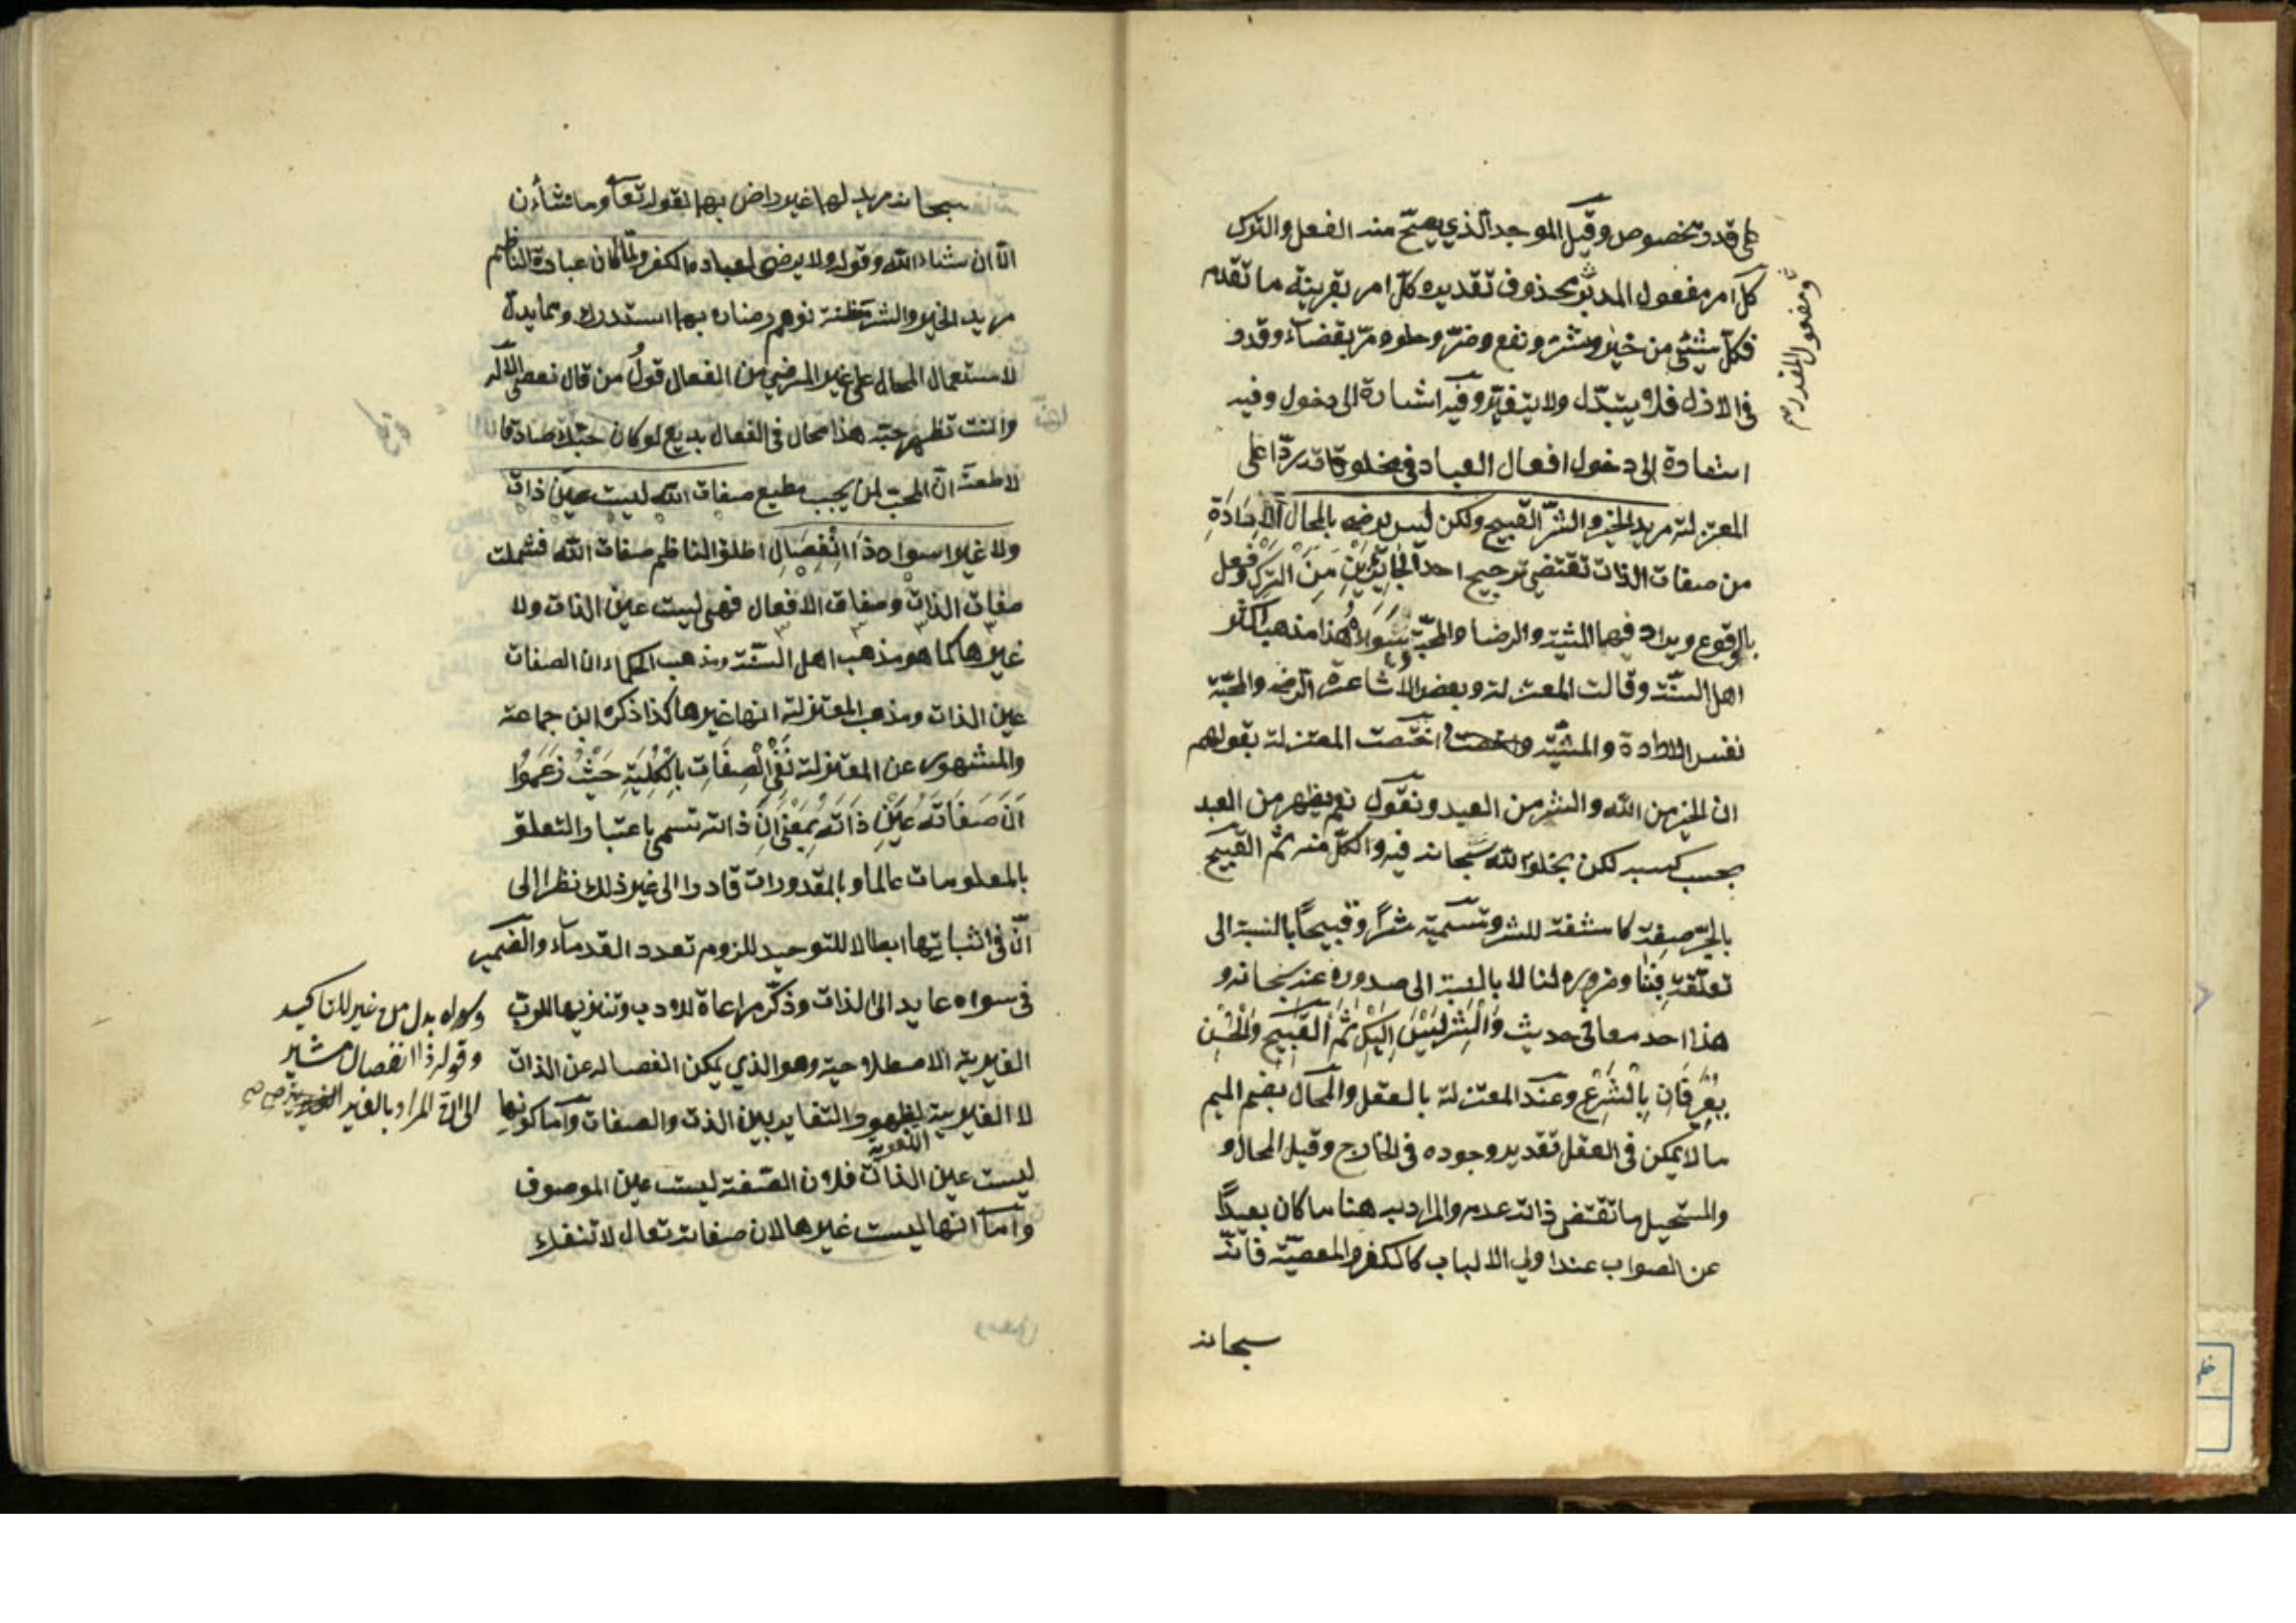 على قدر مخصوص وقيل الموجد الذي يصح منه الفعل والترك
كل امر مفعول المدبر محذوف تقديره كل امر بقرينة ما تقدم
فكل شيئ من خير وشر ونفع وضر وحلو ومر بقضاء وقدر
في الازل فلا يتبدل ولا يتغير وفيه اشارة الى دخول وفيه
اشارة الى دخول افعال العباد في مخلوقاته ردا على
المعتزلة مريد الخير والشر القبيح ولكن ليس يرضى بالمحال الارادة
من صفات الذات تقتضي ترجيح احد الجانبين من الترك وفعل
بالوقوع ويرادفها المشية والرضا والمحبة سواء هذا مذهب اكثر
اهل السنة وقالت المعتزلة وبعض الاشاعرة الرضى والمحبة
نفس الارادة والمشية واختصت المعتزلة بقولهم
ان الخير من الله والشر من العبد ونقول نعم يظهر من العبد
بحسب كسبه لكن بخلق الله سبحانه فيه والكل منه ثم القبيح
بالجر صفة كاشفة للشر وتسمية شرا وقبيحا بالنسبة الى
تعلقه بنا وضرره لنا لا بالنسبة الى صدوره عنه سبحانه و
هذا احد معاني حديث والشر ليس اليك ثم القبيح والحسن
يعرفان بالشرع وعند المعتزلة بالعقل والمحال بضم الميم
ما لا يمكن في العقل تقدير وجوده في الخارج وقيل المحال و
والمستحيل ما تقتضي ذاته عدمه والمراد به هنا ما كان بعيدا
عن الصواب عند اولي الالباب كالكفر والمعصية فانه
سبحانه
ومفعول المقدر
سبحانه مريد لها غير راض بها لقوله تعالى وما تشاؤن
الا ان يشاء الله وقوله ولا يرضى لعباده الكفر ولما كان عبارة الناظم
مريد الخير والشر مظنة توهم رضاه بهما استدرك ومما يدل
لاستعمال المحال على غير المرضي من الفعال قول من قال تعصي الاله
وانت تظهر حبه هذا محال في الفعال بديع لو كان حبك صادقا
لاطعته ان المحب لمن يحب مطيع صفات الله ليست عين ذات
ولا غيرا سواه ذا انفصال اطلق الناظم صفات الله فشملت
صفات الذات وصفات الافعال فهي ليست عين الذات ولا
غيرها كما هو مذهب اهل السنة ومذهب الحكماء ان الصفات
عين الذات ومذهب المعتزلة انها غيرها كذا ذكره ابن جماعة
والمشهور عن المعتزلة نفي الصفات بالكلية حيث زعموا
ان صفاته عين ذاته بمعنى ان ذاته تسمى باعتبار التعلق
بالمعلومات عالما وبالمقدورات قادرا الى غير ذلك نظرا الى
ان في اثباتها ابطالا للتوحيد للزوم تعدد القدماء والضمير
في سواه عايد الى الذات وذكر مراعاة للادب وتنزيها للرب
الغيرية الاصطلاحية وهو الذي يمكن انفصاله عن الذات
لا الغيرية اللغوية لظهور التغاير بين الذات والصفات واما كونها
ليست عين الذات فلان الصفة ليست عين الموصوف
واما انها ليست غيرها لان صفاته تعالى لا تنفك
وسواه بدل من غير للتاكيد
وقوله ذا انفصال مشير
الى ان المراد بالغير